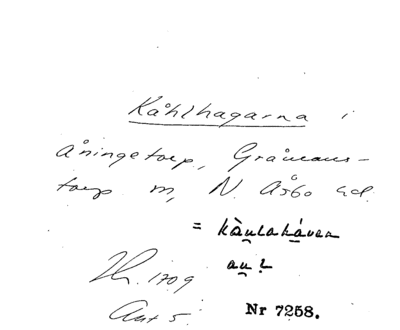 Kåhlhagarna i
Åningetorp, Gråmans-
torp sn, N. Åsbo hd.
= kàu̯lahá
au̯ ?
1709
Akt 5. Nr 7258.